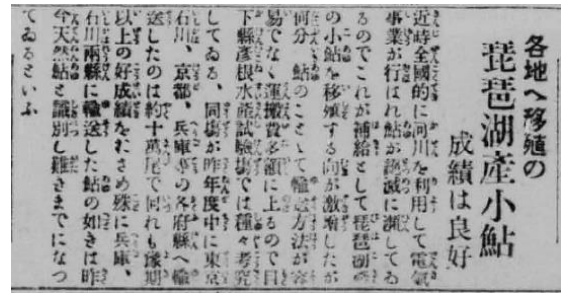 各地へ移殖の
琵琶湖產小鮎
成績は良好
近時全國的に河川を利用して電氣
事業が行はれ鮎が絕滅に瀕してゐ
るのでこれが補給として琵琶湖產
の小鮎を移殖する向が激增したが
何分 鮎のこととて輸送方法が容
易でなく運搬費多額に上るので目
下縣彥根水產試驗場では種々考究
してゐる、同場が昨年度中に東京
石川、京都、兵庫等の各府縣へ輸
送したのは約十萬尾で何れも豫期
以上の好成績をおさめ殊に兵庫、
石川兩縣に輸送した鮎の如きは昨
今天然鮎と識別し難きまでになつ
てゐるといふ